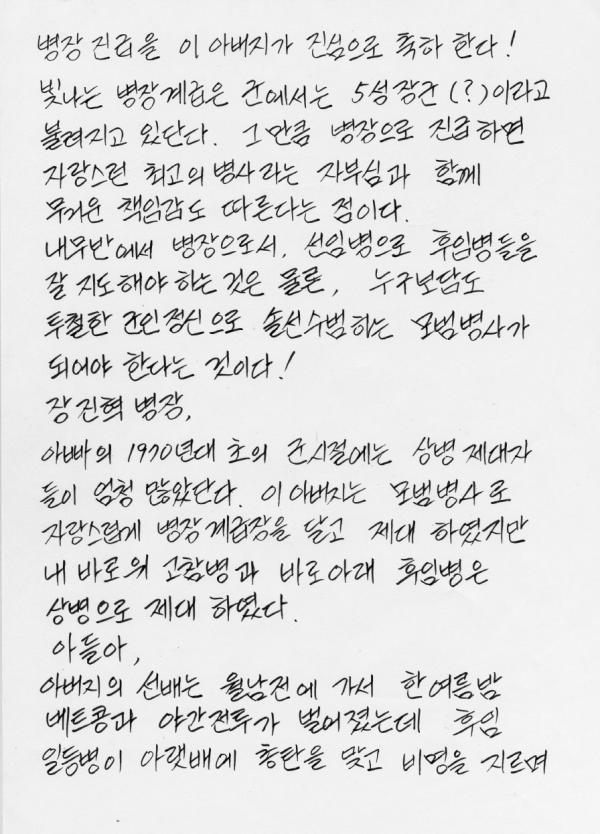 병장 진급을 이 아버지가 진심으로 축하 한다!
빛나는 병장계급은 군에서는 5성장군(?)이라고
불려지고 있단다. 그만큼 병장으로 진급하면
자랑스런 최고의 병사라는 자부심과 함께
무거운 책임감도 따른다는 점이다.
내무반에서 병장으로서, 선임병으로 후임병들을
잘 지도해야 하는 것은 물론, 누구보담도
투철한 군인정신으로 솔선수범하는 모범병사가
되어야 한다는 것이다!
장진혁 병장,
아빠의 1970년대 초의 군시절에는 상병 제대자
들이 엄청 많았단다. 이 아버지는 모범병사로
자랑스럽게 병장계급장을 달고 제대 하였지만
내 바로위 고참병과 바로아래 후임병은
상병으로 제대 하였다.
아들아,
아버지의 선배는 월남전에 가서 한여름밤
베트콩과 야간전투가 벌어졌는데 후임
일등병이 아랫배에 총탄을 맞고 비명을 지르며